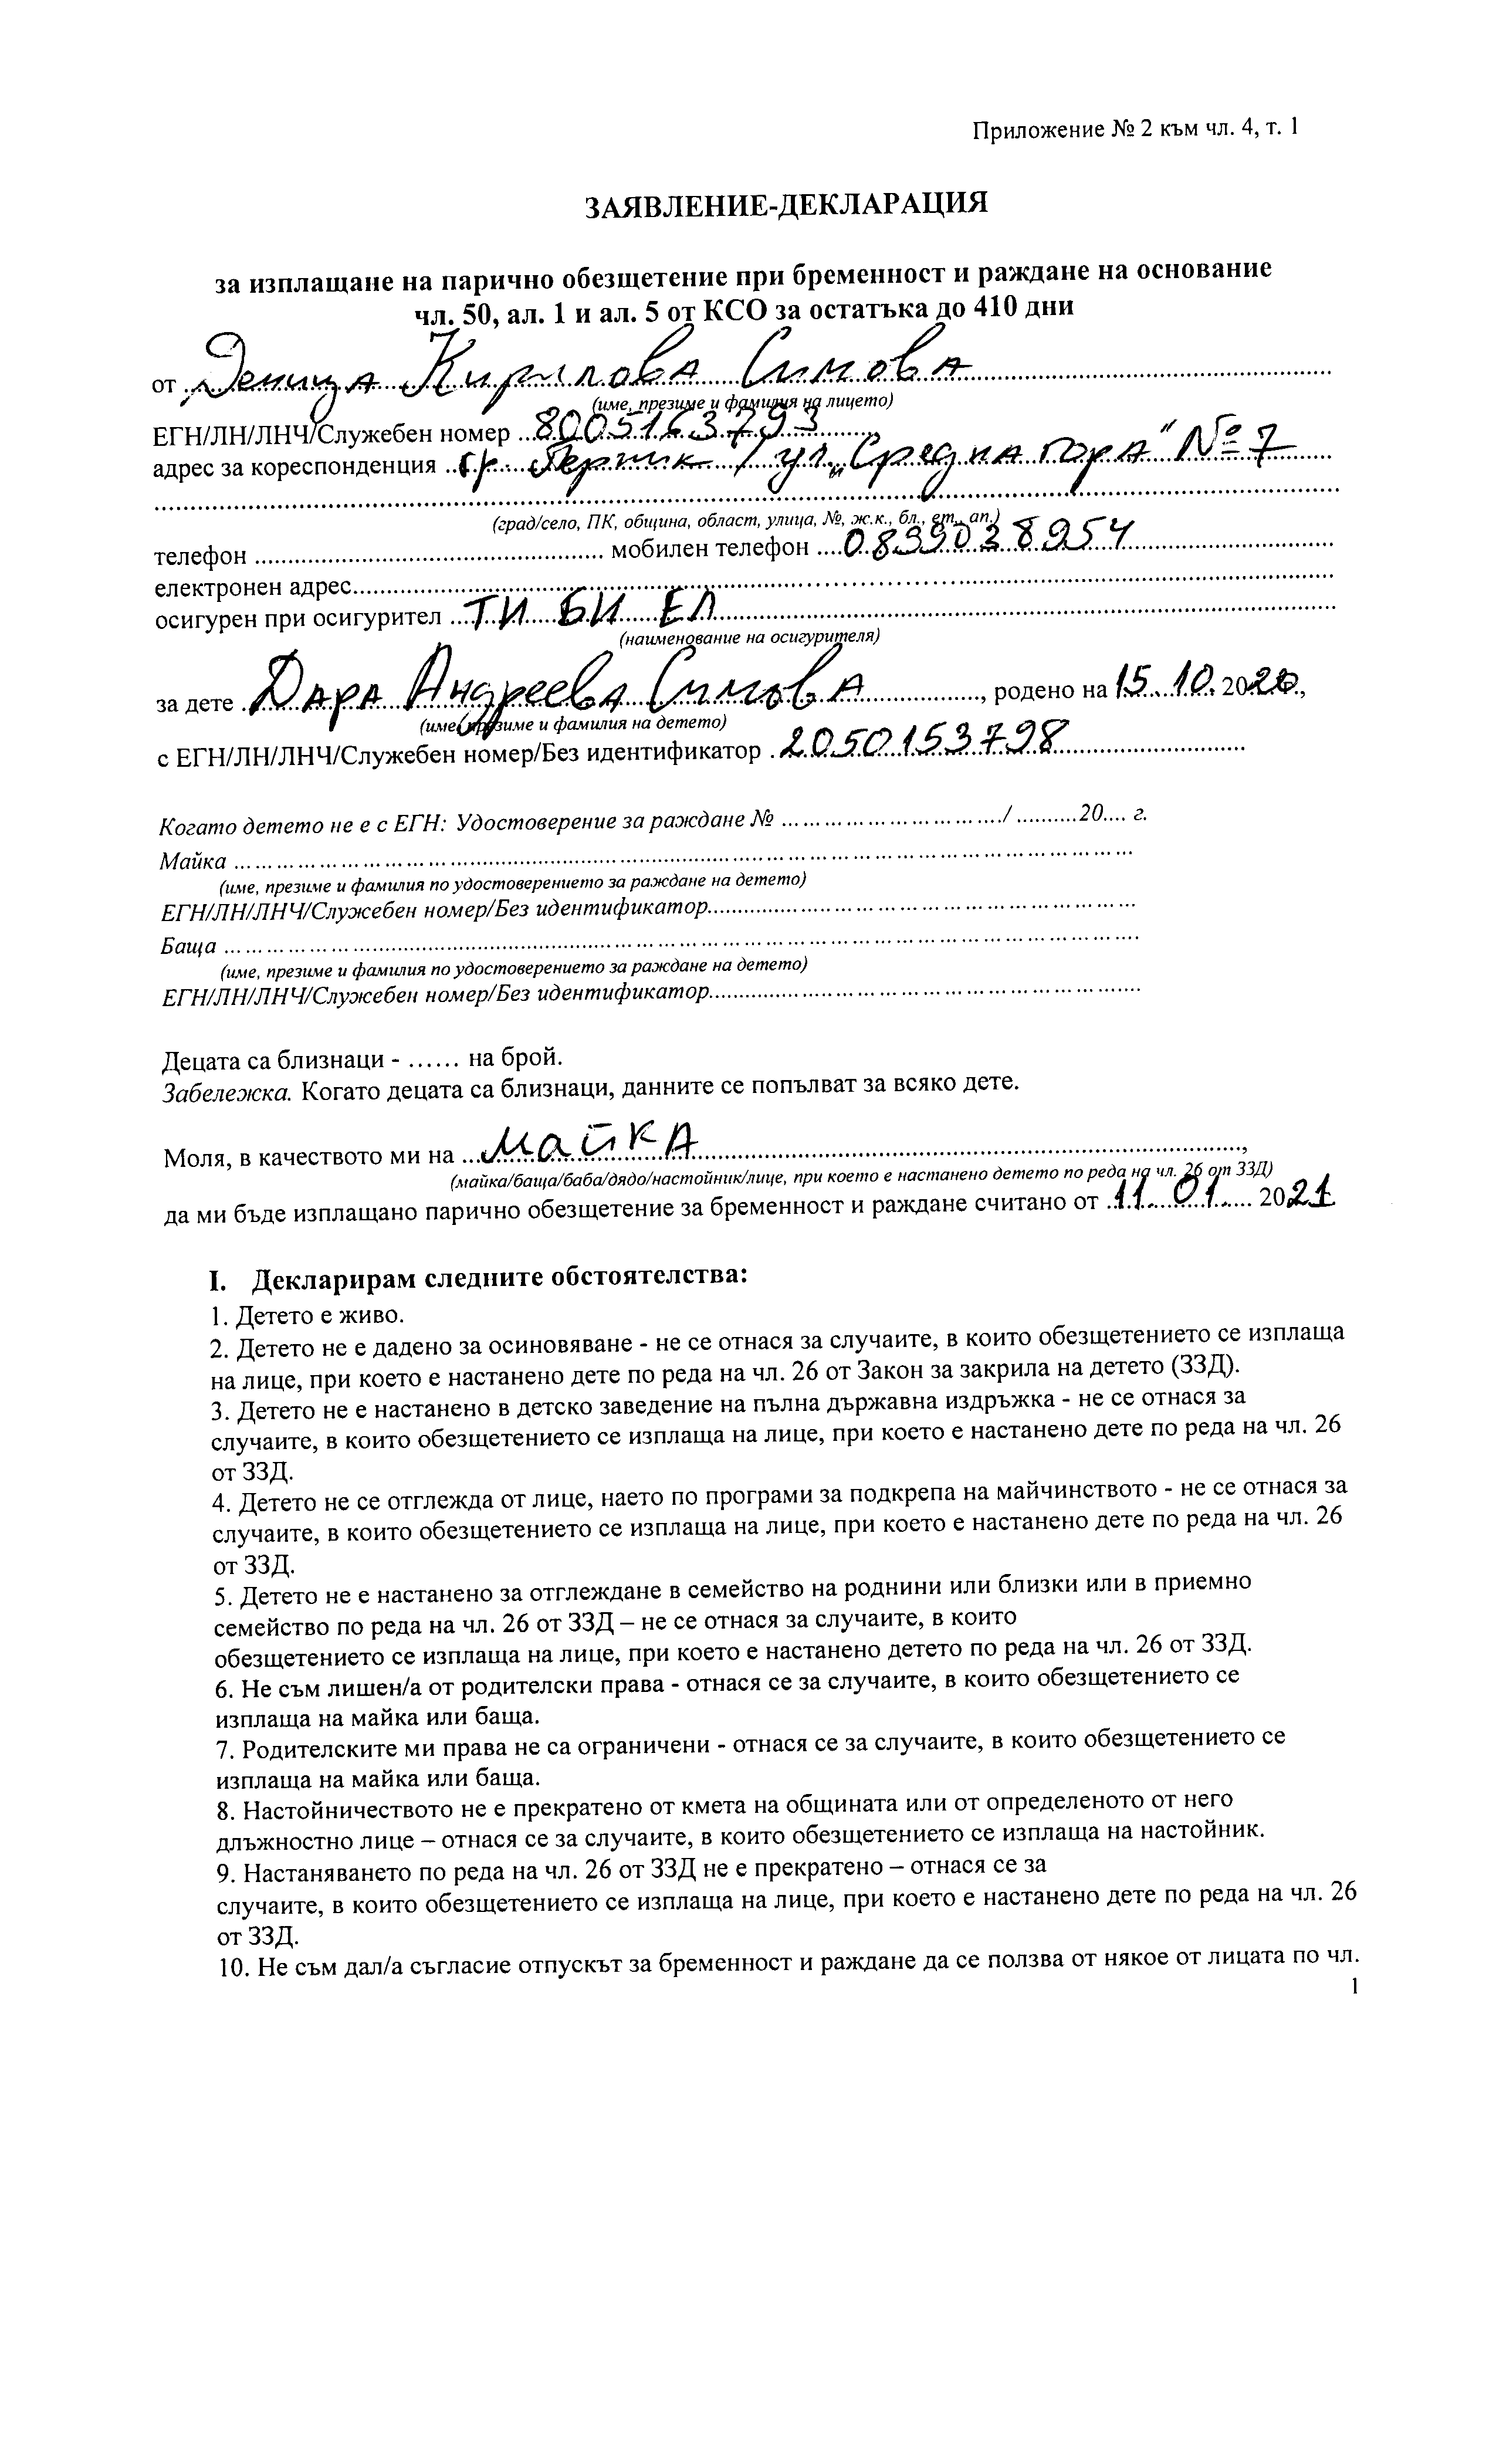 Приложение № 2 към чл. 4, т. 1
ЗАЯВЛЕНИЕ-ДЕКЛАРАЦИЯ
за изплащане на парично обезщетение при бременност и раждане на основание
чл. 50, ал. 1 и ал. 5 от КСО за остатъка до 410 дни
от Деница Кирилова Симова
(име, презиме и фамилия на лицето)
ЕГН/ЛН/ЛНЧ/Служебен номер 8005163793
адрес за кореспонденция гр. Перник / ул. „Средна гора" № 7
(град/село, ПК, община, област, улица, №, ж.к., бл., ет., ап.)
телефон ........ мобилен телефон 0899038954
електронен адрес........
осигурен при осигурител ТИ БИ ЕЛ
(наименование на осигурителя)
за дете Дара Андреева Симова, родено на 15.10.2020,
(име, презиме и фамилия на детето)
с ЕГН/ЛН/ЛНЧ/Служебен номер/Без идентификатор 2050153798
Когато детето не е с ЕГН: Удостоверение за раждане № ......../ ........20.... г.
Майка ........
(име, презиме и фамилия по удостоверението за раждане на детето)
ЕГН/ЛН/ЛНЧ/Служебен номер/Без идентификатор........
Баща ........
(име, презиме и фамилия по удостоверението за раждане на детето)
ЕГН/ЛН/ЛНЧ/Служебен номер/Без идентификатор........
Децата са близнаци - ...... на брой.
Забележка. Когато децата са близнаци, данните се попълват за всяко дете.
Моля, в качеството ми на майка,
(майка/баща/баба/дядо/настойник/лице, при което е настанено детето по реда на чл. 26 от ЗЗД)
да ми бъде изплащано парично обезщетение за бременност и раждане считано от 11.01. 2021
I. Декларирам следните обстоятелства:
1. Детето е живо.
2. Детето не е дадено за осиновяване - не се отнася за случаите, в които обезщетението се изплаща
на лице, при което е настанено дете по реда на чл. 26 от Закон за закрила на детето (ЗЗД).
3. Детето не е настанено в детско заведение на пълна държавна издръжка - не се отнася за
случаите, в които обезщетението се изплаща на лице, при което е настанено дете по реда на чл. 26
от ЗЗД.
4. Детето не се отглежда от лице, наето по програми за подкрепа на майчинството - не се отнася за
случаите, в които обезщетението се изплаща на лице, при което е настанено дете по реда на чл. 26
от ЗЗД.
5. Детето не е настанено за отглеждане в семейство на роднини или близки или в приемно
семейство по реда на чл. 26 от ЗЗД – не се отнася за случаите, в които
обезщетението се изплаща на лице, при което е настанено детето по реда на чл. 26 от ЗЗД.
6. Не съм лишен/а от родителски права - отнася се за случаите, в които обезщетението се
изплаща на майка или баща.
7. Родителските ми права не са ограничени - отнася се за случаите, в които обезщетението се
изплаща на майка или баща.
8. Настойничеството не е прекратено от кмета на общината или от определеното от него
длъжностно лице – отнася се за случаите, в които обезщетението се изплаща на настойник.
9. Настаняването по реда на чл. 26 от ЗЗД не е прекратено – отнася се за
случаите, в които обезщетението се изплаща на лице, при което е настанено дете по реда на чл. 26
от ЗЗД.
10. Не съм дал/а съгласие отпускът за бременност и раждане да се ползва от някое от лицата по чл.
1